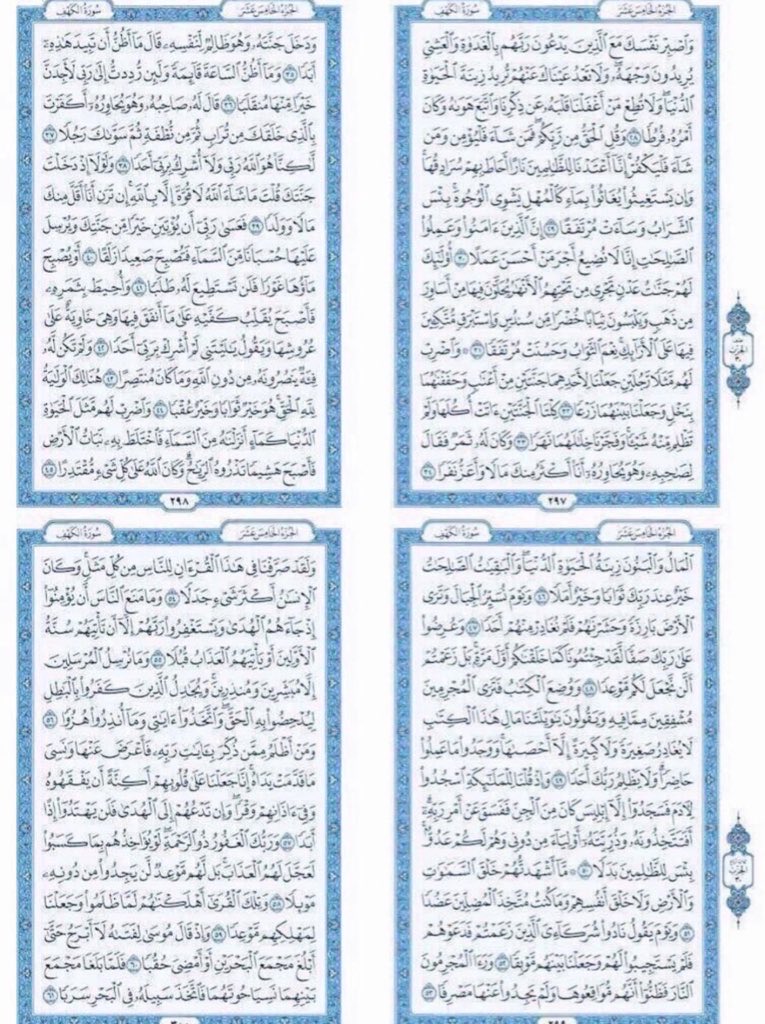 سورة الكهف
الجزء الخامس عشر
وَاصْبِرْ نَفْسَكَ مَعَ الَّذِينَ يَدْعُونَ رَبَّهُم بِالْغَدَاةِ وَالْعَشِيِّ
يُرِيدُونَ وَجْهَهُ وَلَا تَعْدُ عَيْنَاكَ عَنْهُمْ تُرِيدُ زِينَةَ الْحَيَاةِ
الدُّنْيَا وَلَا تُطِعْ مَنْ أَغْفَلْنَا قَلْبَهُ عَن ذِكْرِنَا وَاتَّبَعَ هَوَاهُ وَكَانَ
أَمْرُهُ فُرُطًا ٢٨ وَقُلِ الْحَقُّ مِن رَّبِّكُمْ فَمَن شَاءَ فَلْيُؤْمِن وَمَن
شَاءَ فَلْيَكْفُرْ إِنَّا أَعْتَدْنَا لِلظَّالِمِينَ نَارًا أَحَاطَ بِهِمْ سُرَادِقُهَا
وَإِن يَسْتَغِيثُوا يُغَاثُوا بِمَاءٍ كَالْمُهْلِ يَشْوِي الْوُجُوهَ بِئْسَ
الشَّرَابُ وَسَاءَتْ مُرْتَفَقًا ٢٩ إِنَّ الَّذِينَ آمَنُوا وَعَمِلُوا
الصَّالِحَاتِ إِنَّا لَا نُضِيعُ أَجْرَ مَنْ أَحْسَنَ عَمَلًا ٣٠ أُولَٰئِكَ
لَهُمْ جَنَّاتُ عَدْنٍ تَجْرِي مِن تَحْتِهِمُ الْأَنْهَارُ يُحَلَّوْنَ فِيهَا مِنْ أَسَاوِرَ
مِن ذَهَبٍ وَيَلْبَسُونَ ثِيَابًا خُضْرًا مِّن سُندُسٍ وَإِسْتَبْرَقٍ مُّتَّكِئِينَ
فِيهَا عَلَى الْأَرَائِكِ نِعْمَ الثَّوَابُ وَحَسُنَتْ مُرْتَفَقًا ٣١ وَاضْرِبْ
لَهُم مَّثَلًا رَّجُلَيْنِ جَعَلْنَا لِأَحَدِهِمَا جَنَّتَيْنِ مِنْ أَعْنَابٍ وَحَفَفْنَاهُمَا
بِنَخْلٍ وَجَعَلْنَا بَيْنَهُمَا زَرْعًا ٣٢ كِلْتَا الْجَنَّتَيْنِ آتَتْ أُكُلَهَا وَلَمْ
تَظْلِم مِّنْهُ شَيْئًا وَفَجَّرْنَا خِلَالَهُمَا نَهَرًا ٣٣ وَكَانَ لَهُ ثَمَرٌ فَقَالَ
لِصَاحِبِهِ وَهُوَ يُحَاوِرُهُ أَنَا أَكْثَرُ مِنكَ مَالًا وَأَعَزُّ نَفَرًا ٣٤
٢٩٧
سورة الكهف
الجزء الخامس عشر
وَدَخَلَ جَنَّتَهُ وَهُوَ ظَالِمٌ لِّنَفْسِهِ قَالَ مَا أَظُنُّ أَن تَبِيدَ هَٰذِهِ
أَبَدًا ٣٥ وَمَا أَظُنُّ السَّاعَةَ قَائِمَةً وَلَئِن رُّدِدتُّ إِلَىٰ رَبِّي لَأَجِدَنَّ
خَيْرًا مِّنْهَا مُنقَلَبًا ٣٦ قَالَ لَهُ صَاحِبُهُ وَهُوَ يُحَاوِرُهُ أَكَفَرْتَ
بِالَّذِي خَلَقَكَ مِن تُرَابٍ ثُمَّ مِن نُّطْفَةٍ ثُمَّ سَوَّاكَ رَجُلًا ٣٧
لَّٰكِنَّا هُوَ اللَّهُ رَبِّي وَلَا أُشْرِكُ بِرَبِّي أَحَدًا ٣٨ وَلَوْلَا إِذْ دَخَلْتَ
جَنَّتَكَ قُلْتَ مَا شَاءَ اللَّهُ لَا قُوَّةَ إِلَّا بِاللَّهِ إِن تَرَنِ أَنَا أَقَلَّ مِنكَ
مَالًا وَوَلَدًا ٣٩ فَعَسَىٰ رَبِّي أَن يُؤْتِيَنِ خَيْرًا مِّن جَنَّتِكَ وَيُرْسِلَ
عَلَيْهَا حُسْبَانًا مِّنَ السَّمَاءِ فَتُصْبِحَ صَعِيدًا زَلَقًا ٤٠ أَوْ يُصْبِحَ
مَاؤُهَا غَوْرًا فَلَن تَسْتَطِيعَ لَهُ طَلَبًا ٤١ وَأُحِيطَ بِثَمَرِهِ
فَأَصْبَحَ يُقَلِّبُ كَفَّيْهِ عَلَىٰ مَا أَنفَقَ فِيهَا وَهِيَ خَاوِيَةٌ عَلَىٰ
عُرُوشِهَا وَيَقُولُ يَا لَيْتَنِي لَمْ أُشْرِكْ بِرَبِّي أَحَدًا ٤٢ وَلَمْ تَكُن لَّهُ
فِئَةٌ يَنصُرُونَهُ مِن دُونِ اللَّهِ وَمَا كَانَ مُنتَصِرًا ٤٣ هُنَالِكَ الْوَلَايَةُ
لِلَّهِ الْحَقِّ هُوَ خَيْرٌ ثَوَابًا وَخَيْرٌ عُقْبًا ٤٤ وَاضْرِبْ لَهُم مَّثَلَ الْحَيَاةِ
الدُّنْيَا كَمَاءٍ أَنزَلْنَاهُ مِنَ السَّمَاءِ فَاخْتَلَطَ بِهِ نَبَاتُ الْأَرْضِ
فَأَصْبَحَ هَشِيمًا تَذْرُوهُ الرِّيَاحُ وَكَانَ اللَّهُ عَلَىٰ كُلِّ شَيْءٍ مُّقْتَدِرًا ٤٥
٢٩٨
سورة الكهف
الجزء الخامس عشر
الْمَالُ وَالْبَنُونَ زِينَةُ الْحَيَاةِ الدُّنْيَا وَالْبَاقِيَاتُ الصَّالِحَاتُ
خَيْرٌ عِندَ رَبِّكَ ثَوَابًا وَخَيْرٌ أَمَلًا ٤٦ وَيَوْمَ نُسَيِّرُ الْجِبَالَ وَتَرَى
الْأَرْضَ بَارِزَةً وَحَشَرْنَاهُمْ فَلَمْ نُغَادِرْ مِنْهُمْ أَحَدًا ٤٧ وَعُرِضُوا
عَلَىٰ رَبِّكَ صَفًّا لَّقَدْ جِئْتُمُونَا كَمَا خَلَقْنَاكُمْ أَوَّلَ مَرَّةٍ بَلْ زَعَمْتُمْ
أَلَّن نَّجْعَلَ لَكُم مَّوْعِدًا ٤٨ وَوُضِعَ الْكِتَابُ فَتَرَى الْمُجْرِمِينَ
مُشْفِقِينَ مِمَّا فِيهِ وَيَقُولُونَ يَا وَيْلَتَنَا مَالِ هَٰذَا الْكِتَابِ
لَا يُغَادِرُ صَغِيرَةً وَلَا كَبِيرَةً إِلَّا أَحْصَاهَا وَوَجَدُوا مَا عَمِلُوا
حَاضِرًا وَلَا يَظْلِمُ رَبُّكَ أَحَدًا ٤٩ وَإِذْ قُلْنَا لِلْمَلَائِكَةِ اسْجُدُوا
لِآدَمَ فَسَجَدُوا إِلَّا إِبْلِيسَ كَانَ مِنَ الْجِنِّ فَفَسَقَ عَنْ أَمْرِ رَبِّهِ
أَفَتَتَّخِذُونَهُ وَذُرِّيَّتَهُ أَوْلِيَاءَ مِن دُونِي وَهُمْ لَكُمْ عَدُوٌّ
بِئْسَ لِلظَّالِمِينَ بَدَلًا ٥٠ مَّا أَشْهَدتُّهُمْ خَلْقَ السَّمَاوَاتِ
وَالْأَرْضِ وَلَا خَلْقَ أَنفُسِهِمْ وَمَا كُنتُ مُتَّخِذَ الْمُضِلِّينَ عَضُدًا
٥١ وَيَوْمَ يَقُولُ نَادُوا شُرَكَائِيَ الَّذِينَ زَعَمْتُمْ فَدَعَوْهُمْ
فَلَمْ يَسْتَجِيبُوا لَهُمْ وَجَعَلْنَا بَيْنَهُم مَّوْبِقًا ٥٢ وَرَأَى الْمُجْرِمُونَ
النَّارَ فَظَنُّوا أَنَّهُم مُّوَاقِعُوهَا وَلَمْ يَجِدُوا عَنْهَا مَصْرِفًا ٥٣
سورة الكهف
الجزء الخامس عشر
وَلَقَدْ صَرَّفْنَا فِي هَٰذَا الْقُرْآنِ لِلنَّاسِ مِن كُلِّ مَثَلٍ وَكَانَ
الْإِنسَانُ أَكْثَرَ شَيْءٍ جَدَلًا ٥٤ وَمَا مَنَعَ النَّاسَ أَن يُؤْمِنُوا
إِذْ جَاءَهُمُ الْهُدَىٰ وَيَسْتَغْفِرُوا رَبَّهُمْ إِلَّا أَن تَأْتِيَهُمْ سُنَّةُ
الْأَوَّلِينَ أَوْ يَأْتِيَهُمُ الْعَذَابُ قُبُلًا ٥٥ وَمَا نُرْسِلُ الْمُرْسَلِينَ
إِلَّا مُبَشِّرِينَ وَمُنذِرِينَ وَيُجَادِلُ الَّذِينَ كَفَرُوا بِالْبَاطِلِ
لِيُدْحِضُوا بِهِ الْحَقَّ وَاتَّخَذُوا آيَاتِي وَمَا أُنذِرُوا هُزُوًا ٥٦
وَمَنْ أَظْلَمُ مِمَّن ذُكِّرَ بِآيَاتِ رَبِّهِ فَأَعْرَضَ عَنْهَا وَنَسِيَ
مَا قَدَّمَتْ يَدَاهُ إِنَّا جَعَلْنَا عَلَىٰ قُلُوبِهِمْ أَكِنَّةً أَن يَفْقَهُوهُ
وَفِي آذَانِهِمْ وَقْرًا وَإِن تَدْعُهُمْ إِلَى الْهُدَىٰ فَلَن يَهْتَدُوا إِذًا
أَبَدًا ٥٧ وَرَبُّكَ الْغَفُورُ ذُو الرَّحْمَةِ لَوْ يُؤَاخِذُهُم بِمَا كَسَبُوا
لَعَجَّلَ لَهُمُ الْعَذَابَ بَل لَّهُم مَّوْعِدٌ لَّن يَجِدُوا مِن دُونِهِ
مَوْئِلًا ٥٨ وَتِلْكَ الْقُرَىٰ أَهْلَكْنَاهُمْ لَمَّا ظَلَمُوا وَجَعَلْنَا
لِمَهْلِكِهِم مَّوْعِدًا ٥٩ وَإِذْ قَالَ مُوسَىٰ لِفَتَاهُ لَا أَبْرَحُ حَتَّىٰ
أَبْلُغَ مَجْمَعَ الْبَحْرَيْنِ أَوْ أَمْضِيَ حُقُبًا ٦٠ فَلَمَّا بَلَغَا مَجْمَعَ
بَيْنِهِمَا نَسِيَا حُوتَهُمَا فَاتَّخَذَ سَبِيلَهُ فِي الْبَحْرِ سَرَبًا ٦١